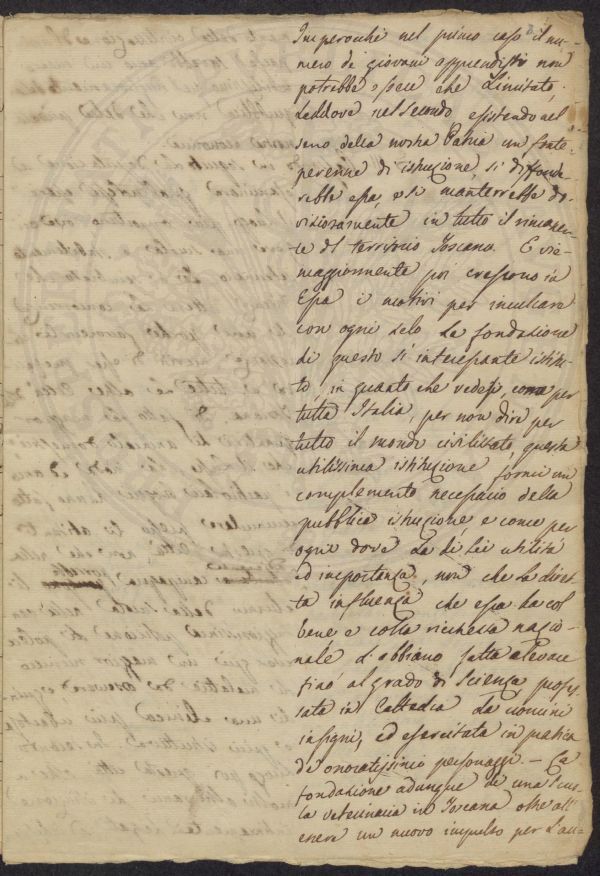 Imperocchè nel primo caso il nu-
mero de giovani apprendisti non
potrebbe essere che Limitato,
Laddove nel secondo, esistendo nel
seno della nostra Patria un fonte
perenne di istruzione, si diffonde-
rebbe essa, e si manterrebbe do-
viziosamente in tutto il rimanen-
te del territorio Toscano. E vie-
maggiormente poi crescono in
Essa i motivi per inculcare
con ogni zelo La fondazione
di questo sì interessante istitu-
to, in quanto che vedesi, come per
tutta Italia, per non dire per
tutto il mondo civilizzato, questa
utilissima istituzione formi un
complemento necessario della
pubblica istruzione e come per
ogni dove La di Lei utilità
ed importanza, non che la diret-
ta influenza che essa ha col
bene e colla ricchezza nazio-
nale L'abbiano fatta elevare
fino al grado di Scienza profes-
sata in Cattedra da uomini
insigni, ed esercitata in pratica
da onoratissimi personaggi. — La
fondazione adunque di una Scuo-
la Veterinaria in Toscana oltre all'
essere un nuovo impulso per L'au-